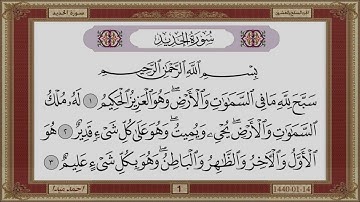 سورة الحديد
الجزء السابع والعشرون
سُورَةُ الْحَدِيدِ
بِسْمِ اللَّهِ الرَّحْمَٰنِ الرَّحِيمِ
سَبَّحَ لِلَّهِ مَا فِي السَّمَاوَاتِ وَالْأَرْضِ ۖ وَهُوَ الْعَزِيزُ الْحَكِيمُ ١ لَهُ مُلْكُ
السَّمَاوَاتِ وَالْأَرْضِ ۖ يُحْيِي وَيُمِيتُ ۖ وَهُوَ عَلَىٰ كُلِّ شَيْءٍ قَدِيرٌ ٢ هُوَ
الْأَوَّلُ وَالْآخِرُ وَالظَّاهِرُ وَالْبَاطِنُ ۖ وَهُوَ بِكُلِّ شَيْءٍ عَلِيمٌ ٣
1
1440-01-14